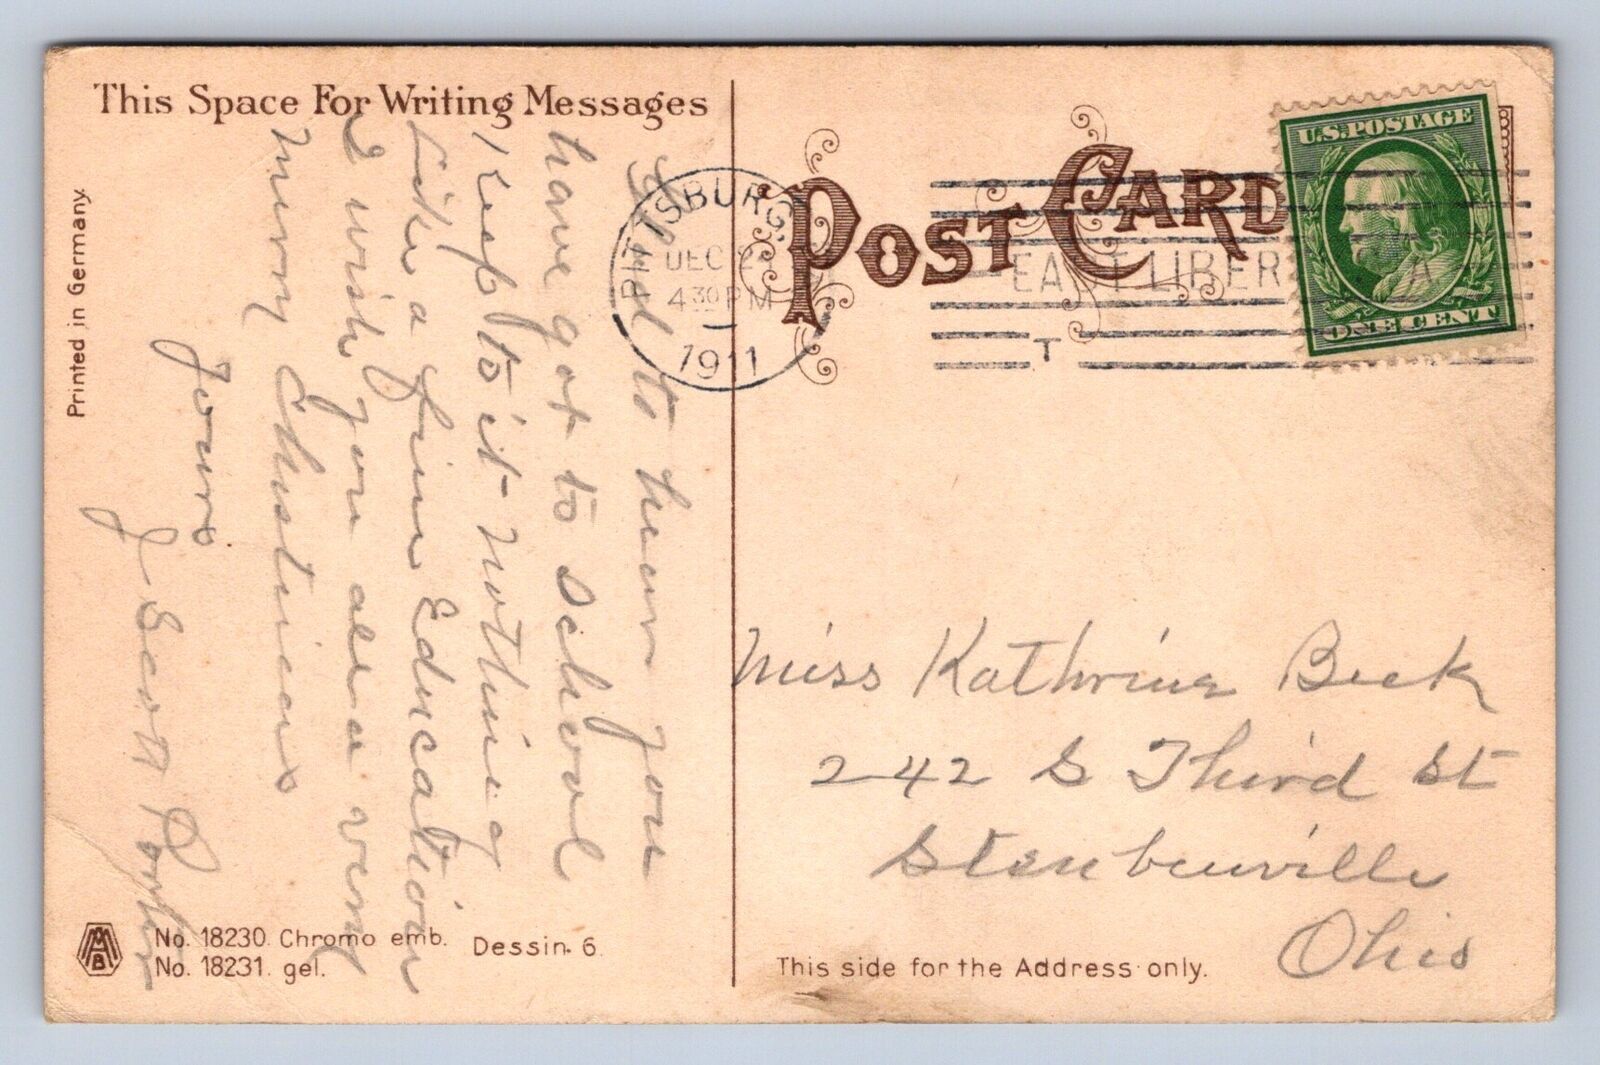 This Space For Writing Messages
Glad to hear you
have got to school
Keep to it nothing
Like a fine Education
I wish you all a very
merry Christmas
Yours
J Scott Porter
Printed in Germany.
No. 18230. Chromo emb.
No. 18231. gel.
Dessin. 6.
MAB
POST CARD
PITTSBURG
DEC
4 30 PM
1911
EAST LIBER
T A
U.S. POSTAGE
ONE CENT
Miss Kathrine Beck
242 S Third St
Steubenville
Ohio
This side for the Address only.